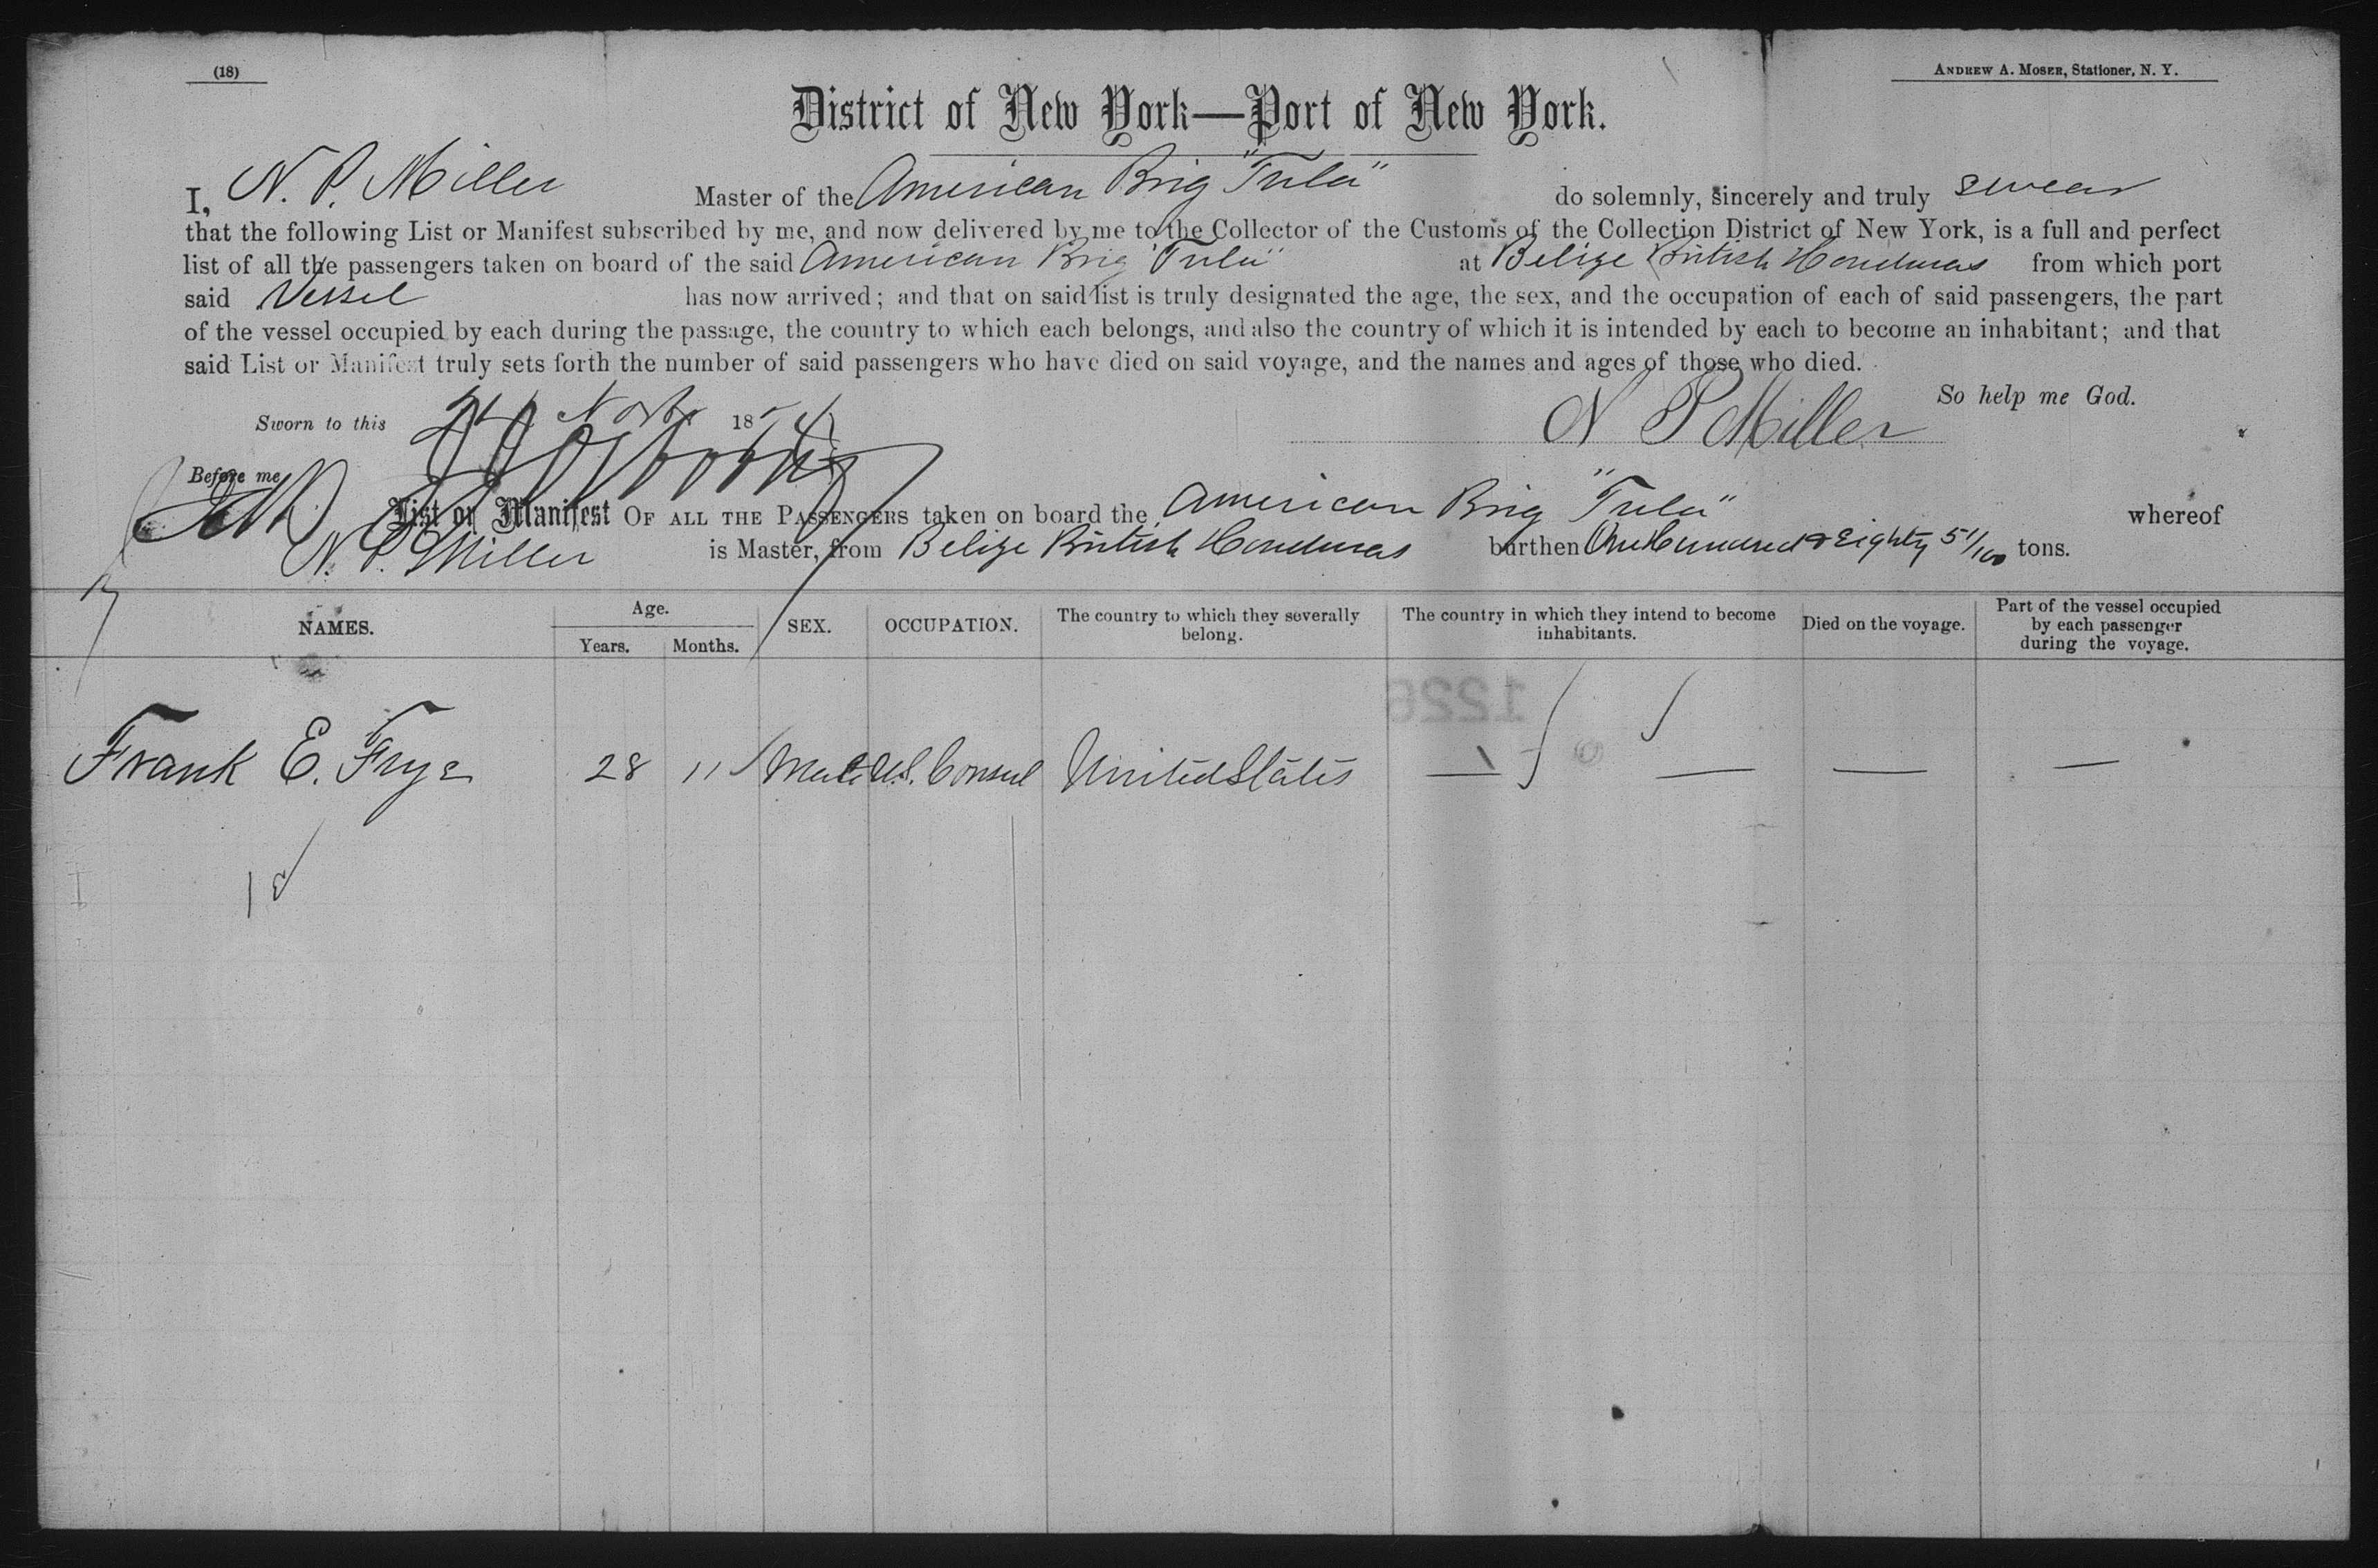 (18)
ANDREW A. MOSER, Stationer, N. Y.
District of New York—Port of New York.
I, N. P. Miller Master of the American Brig "Tula" do solemnly, sincerely and truly swear
that the following List or Manifest subscribed by me, and now delivered by me to the Collector of the Customs of the Collection District of New York, is a full and perfect
list of all the passengers taken on board of the said American Brig "Tula" at Belize British Honduras from which port
said Vessel has now arrived; and that on said list is truly designated the age, the sex, and the occupation of each of said passengers, the part
of the vessel occupied by each during the passage, the country to which each belongs, and also the country of which it is intended by each to become an inhabitant; and that
said List or Manifest truly sets forth the number of said passengers who have died on said voyage, and the names and ages of those who died.
So help me God.
Sworn to this 18
N P Miller
Before me
List or Manifest OF ALL THE PASSENGERS taken on board the American Brig "Tula" whereof
N. P. Miller is Master, from Belize British Honduras burthen One Hundred & Eighty 51/100 tons.
NAMES. Age. Years. Months. SEX. OCCUPATION. The country to which they severally belong. The country in which they intend to become inhabitants. Died on the voyage. Part of the vessel occupied by each passenger during the voyage.
Frank E. Frye 28 11 Male U.S. Consul United States — — — —